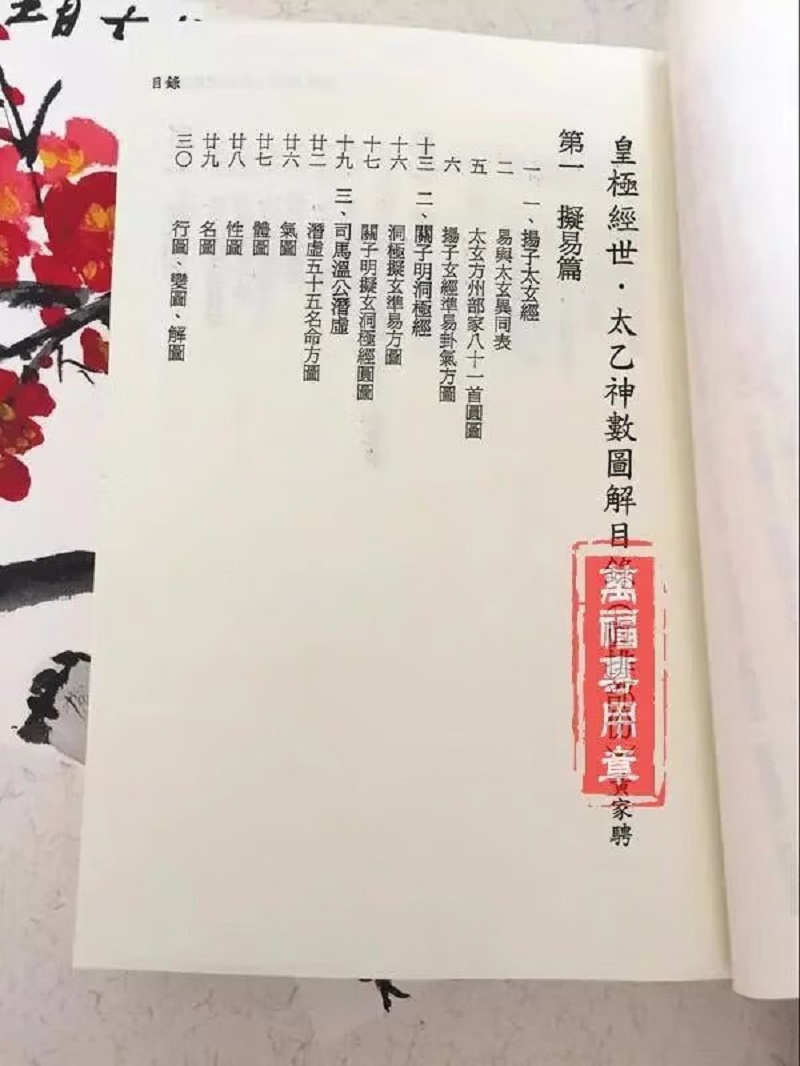 皇極經世·太乙神數圖解目錄
家騁
萬福專用章
第一 擬易篇
一 一、揚子太玄經
二 易與太玄異同表
五 太玄方州部家八十一首圓圖
六 揚子玄經準易卦氣方圖
十三 二、關子明洞極經
十六 洞極擬玄準易方圖
十七 關子明擬玄洞極經圓圖
十九 三、司馬溫公潛虛
廿二 潛虛五十五名命方圖
廿六 氣圖
廿七 體圖
廿八 性圖
廿九 名圖
三〇 行圖、變圖、解圖
目錄